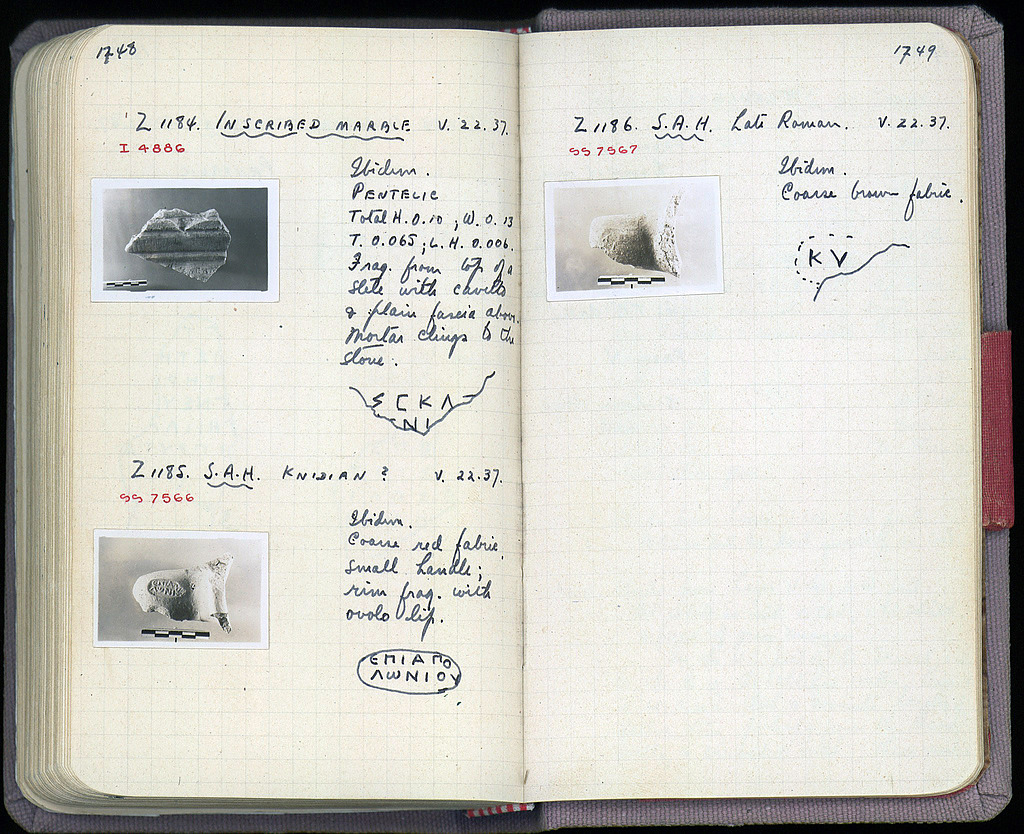 1748
Z 1184. INSCRIBED MARBLE V. 22. 37.
I 4886
Ibidem.
PENTELIC
Total H. 0.10 ; W. 0.13
T. 0.065 ; L. H. 0.006.
Frag. from top of a
stele with cavetto
& plain fascia above.
Mortar clings to the
stone.
S C K Λ
N I
Z 1185. S.A.H. KNIDIAN ? V. 22.37.
SS 7566
Ibidem.
Coarse red fabric.
small handle;
rim frag. with
ovolo lip.
ЄΠΙΑΠΟ
ΛωΝΙΟΥ
1749
Z 1186. S.A.H. Late Roman. V. 22.37.
SS 7567
Ibidem.
Coarse brown fabric.
K V